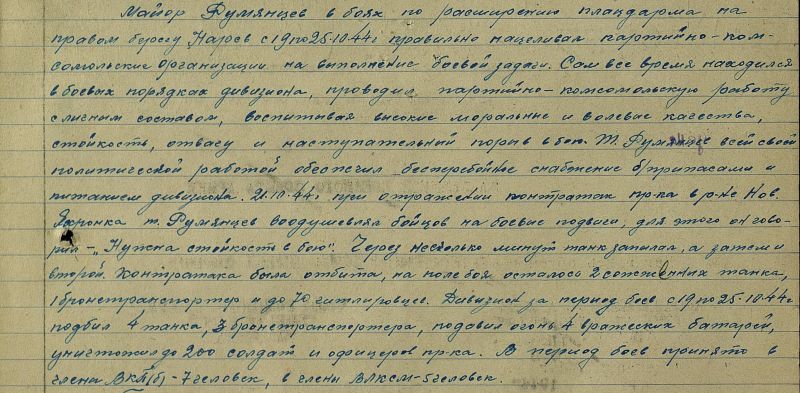 Майор Румянцев в боях по расширению плацдарма на
правом берегу Нарев с 19 по 25.10.44г правильно нацеливал партийно-ком-
сомольские организации на выполнение боевой задачи. Сам все время находился
в боевых порядках дивизиона, проводил партийно-комсомольскую работу
с личным составом, воспитывая высокие моральные и волевые качества,
стойкость, отвагу и наступательный порыв в бою. Т. Румянцев всей своей
политической работой обеспечил бесперебойное снабжение б/припасами и
питанием дивизиона. 21.10.44г при отражении контратак пр-ка в р-не Нов.
Яхронка т. Румянцев воодушевлял бойцов на боевые подвиги, для этого он гово-
рил - "Нужна стойкость в бою". Через несколько минут танк запылал, а затем и
второй. Контратака была отбита, на поле боя осталось 2 сожженных танка,
1 бронетранспортер и до 70 гитлировцев. Дивизион за период боев с 19 по 25.10.44г
подбил 4 танка, 3 бронетранспортера, подавил огонь 4 вражеских батарей,
уничтожил до 200 солдат и офицеров пр-ка. В период боев принято в
члены ВКП(б) - 7 человек, в члены ВЛКСМ - 5 человек.